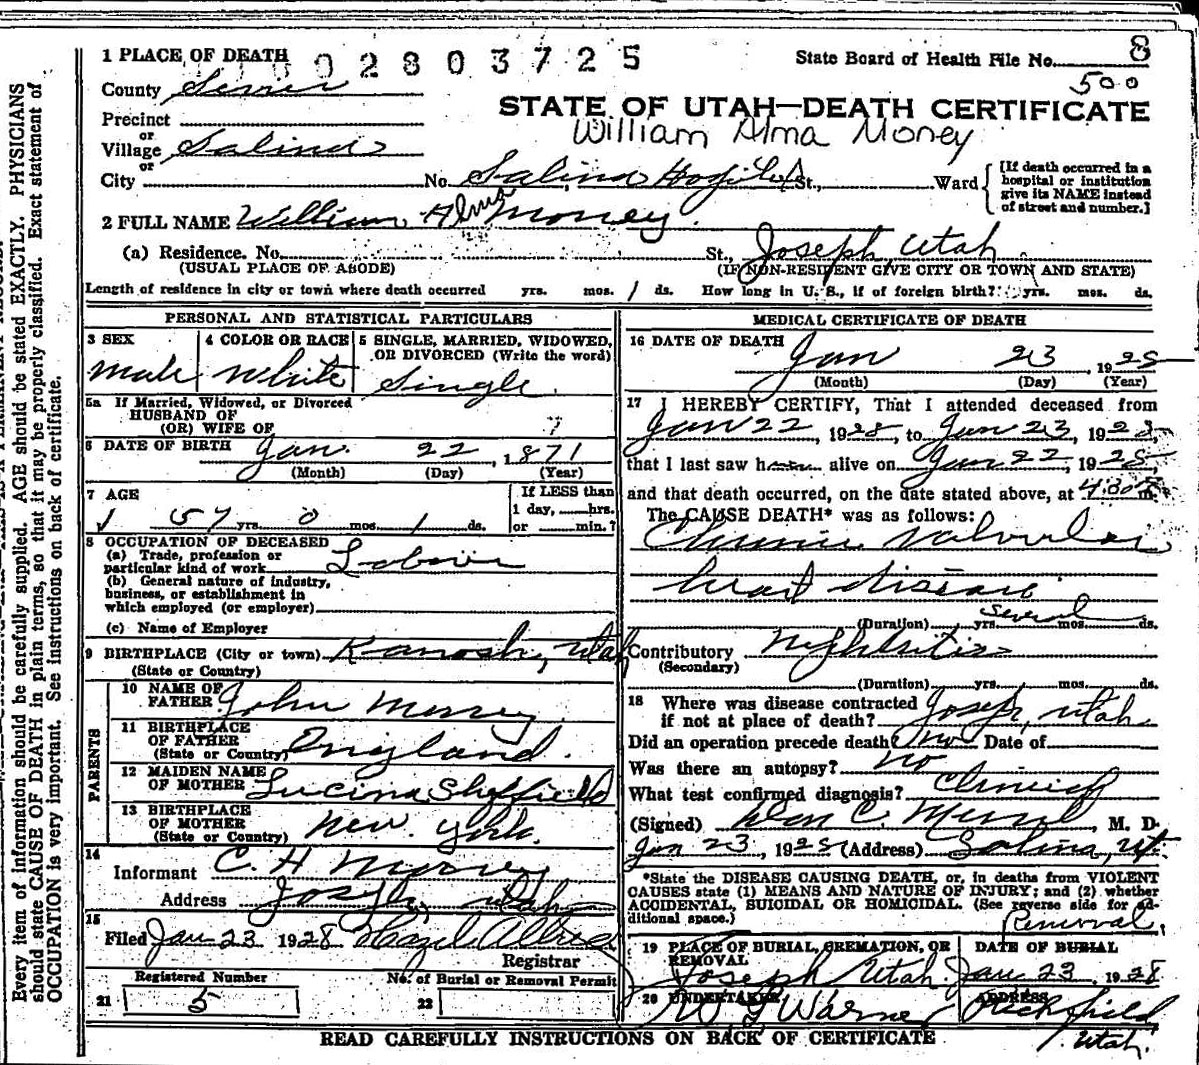 1 PLACE OF DEATH
002803725
State Board of Health File No. 8
500
County Sevier
STATE OF UTAH—DEATH CERTIFICATE
William Alma Money
Precinct
or
Village Salina
or
City No. Salina Hospital St., Ward
[If death occurred in a
hospital or institution
give its NAME instead
of street and number.]
2 FULL NAME William Alma Money
(a) Residence. No. St., Joseph, Utah
(USUAL PLACE OF ABODE) (IF NON-RESIDENT GIVE CITY OR TOWN AND STATE)
Length of residence in city or town where death occurred yrs. mos. 1 ds. How long in U. S., if of foreign birth? yrs. mos. ds.
PERSONAL AND STATISTICAL PARTICULARS
3 SEX
Male
4 COLOR OR RACE
White
5 SINGLE, MARRIED, WIDOWED,
OR DIVORCED (Write the word)
Single
5a If Married, Widowed, or Divorced
HUSBAND OF
(OR) WIFE OF
7
6 DATE OF BIRTH Jan. 22, 1871
(Month) (Day) (Year)
7 AGE
57 yrs. 0 mos. 1 ds.
If LESS than
1 day, hrs.
or min.?
8 OCCUPATION OF DECEASED
(a) Trade, profession or
particular kind of work Labour
(b) General nature of industry,
business, or establishment in
which employed (or employer)
(c) Name of Employer
9 BIRTHPLACE (City or town) Kanosh, Utah
(State or Country)
PARENTS
10 NAME OF
FATHER John Money
11 BIRTHPLACE
OF FATHER
(State or Country) England.
12 MAIDEN NAME
OF MOTHER Lucina Sheffield
13 BIRTHPLACE
OF MOTHER
(State or Country) New York.
14
Informant C. H Money
Address Joseph, Utah
15
Filed Jan 23 1928 Hazel
Registrar
Registered Number
21 5
No. of Burial or Removal Permit
22
MEDICAL CERTIFICATE OF DEATH
16 DATE OF DEATH Jan 23, 1928
(Month) (Day) (Year)
17 I HEREBY CERTIFY, That I attended deceased from
Jan 22, 1928, to Jan 23, 1928,
that I last saw h alive on Jan 22, 1928,
and that death occurred, on the date stated above, at 4:30 m.
The CAUSE DEATH* was as follows:
Chronic Valvular
heart disease
(Duration) several yrs. mos. ds.
Contributory Nephritis
(Secondary)
(Duration) yrs. mos. ds.
18 Where was disease contracted
if not at place of death? Joseph, Utah
Did an operation precede death? no Date of
Was there an autopsy? no
What test confirmed diagnosis? Clinical
(Signed) C. M. D.
Jan 23, 1928 (Address) Salina, Ut.
*State the DISEASE CAUSING DEATH, or, in deaths from VIOLENT
CAUSES state (1) MEANS AND NATURE OF INJURY; and (2) whether
ACCIDENTAL, SUICIDAL OR HOMICIDAL. (See reverse side for ad-
ditional space.)
Removal,
19 PLACE OF BURIAL, CREMATION, OR
REMOVAL
Joseph Utah.
DATE OF BURIAL
Jan 23, 1928
20 UNDERTAKER
W Warner
ADDRESS
Richfield,
Utah.
READ CAREFULLY INSTRUCTIONS ON BACK OF CERTIFICATE
Every item of information should be carefully supplied. AGE should be stated EXACTLY. PHYSICIANS
should state CAUSE OF DEATH in plain terms, so that it may be properly classified. Exact statement of
OCCUPATION is very important. See instructions on back of certificate.